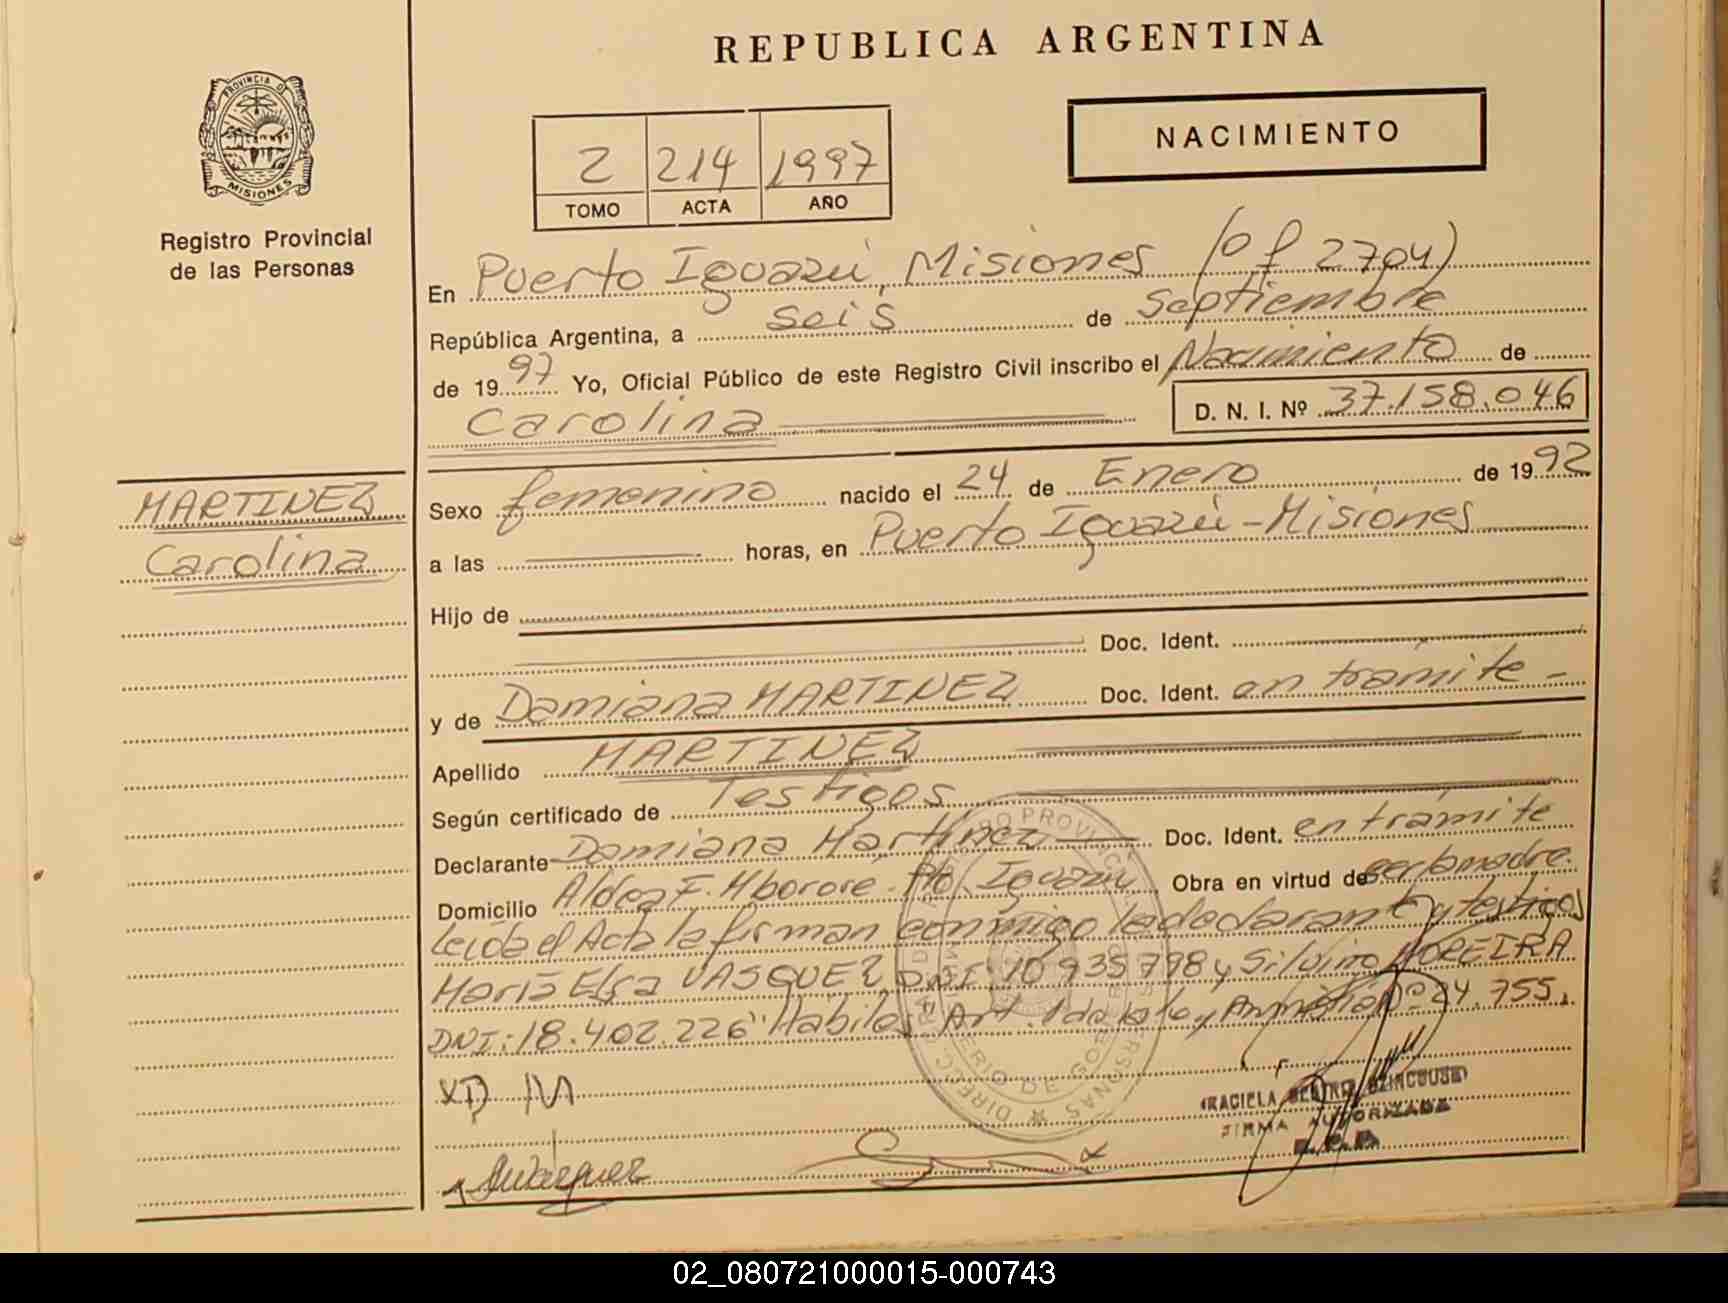 REPUBLICA ARGENTINA
PROVINCIA DE
MISIONES
Registro Provincial
de las Personas
2 214 1997
TOMO ACTA AÑO
NACIMIENTO
En Puerto Iguazú, Misiones (of 2704)
República Argentina, a seis de Septiembre
de 1997 Yo, Oficial Público de este Registro Civil inscribo el Nacimiento de
Carolina D. N. I. Nº 37.158.046
MARTINEZ
Carolina
Sexo femenino nacido el 24 de Enero de 1992
a las horas, en Puerto Iguazú - Misiones
Hijo de
Doc. Ident.
y de Damiana MARTINEZ Doc. Ident. en trámite -
Apellido MARTINEZ
Según certificado de Testigos
Declarante Damiana Martínez Doc. Ident. en trámite
Domicilio Aldea F. Mborore. Pto. Iguazú Obra en virtud de ser la madre.
Leída el Acta la firman conmigo la declarante y testigos
María Elsa VASQUEZ DNI: 10 935798 y Silvino MOREIRA
DNI: 18.402.226 "Habiles" Art. 1 de la ley Amnistía Nº 24.755.
XD M
AVazquez
GRACIELA BEATRIZ
FIRMA AUTORIZADA
02_080721000015-000743